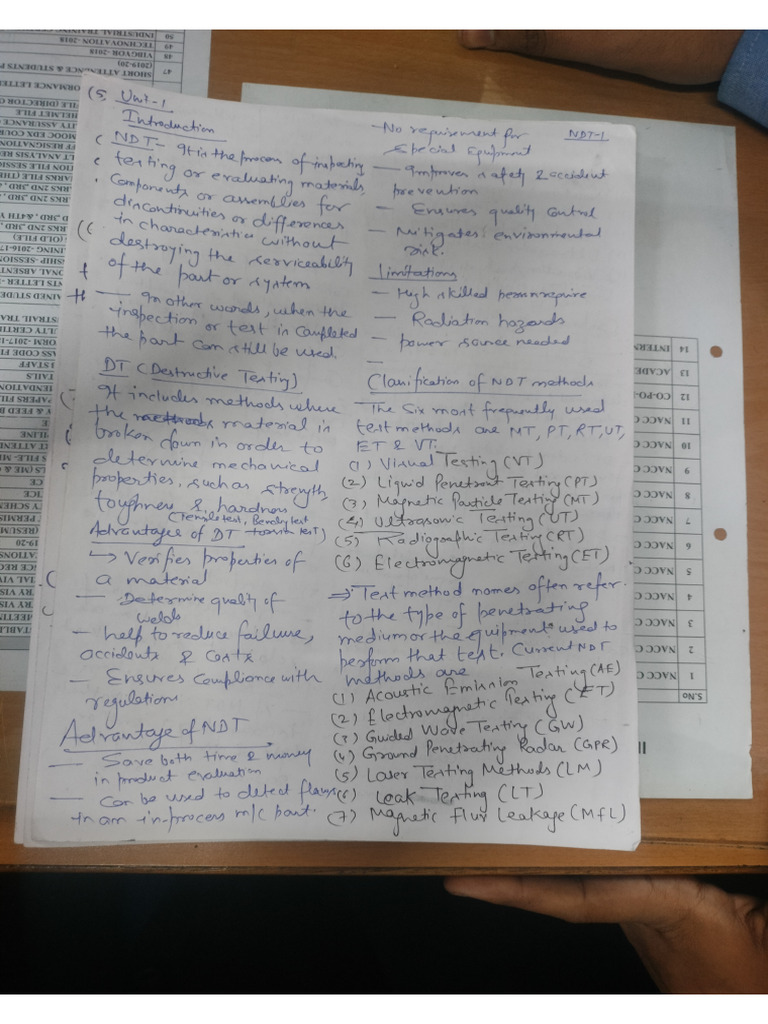 Unit-1
Introduction
NDT- It is the process of inspecting
testing or evaluating materials,
Components or assemblies for
discontinuities or differences
in characteristics without
destroying the serviceability
of the part or system
— In other words, when the
inspection or test is completed
the part can still be used.
DT (Destructive Testing)
It includes methods where
the material is
broken down in order to
determine mechanical
properties, such as strength
toughness & hardness
(Tensile test, Bending test
Advantages of DT
↳ Verifies properties of
a material
— Determine quality of
welds
— help to reduce failure,
accidents & costs
— Ensures compliance with
regulations
Advantage of NDT
— Save both time & money
in product evaluation
— Can be used to detect flaws
in an in-process m/c part.
NDT-1
— No requirement for
Special Equipment
— Improves safety & accident
prevention
— Ensures quality control
— Mitigates environmental
risk.
Limitations
— High skilled person require
— Radiation hazards
— power source needed
—
Classification of NDT methods
— The Six most frequently used
test methods are MT, PT, RT, UT,
ET & VT.
(1) Visual Testing (VT)
(2) Liquid Penetrant Testing (PT)
(3) Magnetic Particle Testing (MT)
(4) Ultrasonic Testing (UT)
(5) Radiographic Testing (RT)
(6) Electromagnetic Testing (ET)
⇒ Test method names often refer
to the type of penetrating
medium or the equipment used to
perform that test. Current NDT
methods are
(1) Acoustic Emission Testing (AE)
(2) Electromagnetic Testing (ET)
(3) Guided Wave Testing (GW)
(4) Ground Penetrating Radar (GPR)
(5) Laser Testing Methods (LM)
(6) Leak Testing (LT)
(7) Magnetic Flux Leakage (MFL)
S.No
1 NACC
2 NACC
3 NACC
4 NACC
5 NACC
6 NACC
7 NACC
8 NACC
9 NACC
10 NACC
11 NACC
12 CO-PO
13 ACADE
14 INTERN
47 SHORT ATTENDENCE & STUDENTS
(2019-20)
48 VIBGYOR-2018
49 TECHNOVATION-2018
50 INDUSTRIAL TRAINING